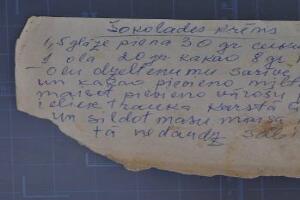 Šokolādes krēms
1,5 glāze piena 30 gr cuku
1 ola 20 gr kakao 8 gr
Olu dzeltenumu sarīvē
un kakao pievieno milt
maisot pievieno vārošu
ieliek traukā karstā
un sildot masu maisa
tā nedaudz sabi